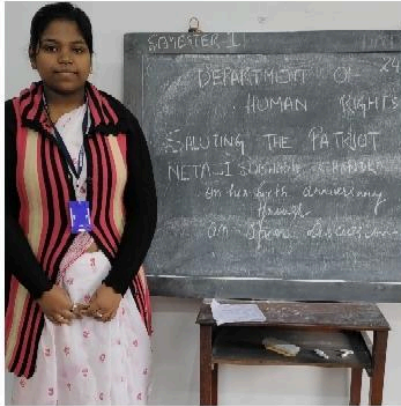 SEMESTER I
24
DEPARTMENT OF
HUMAN RIGHTS
SALUTING THE PATRIOT
NETAJI SUBHASH CHANDRA
on his birth anniversary
through
an open discussion